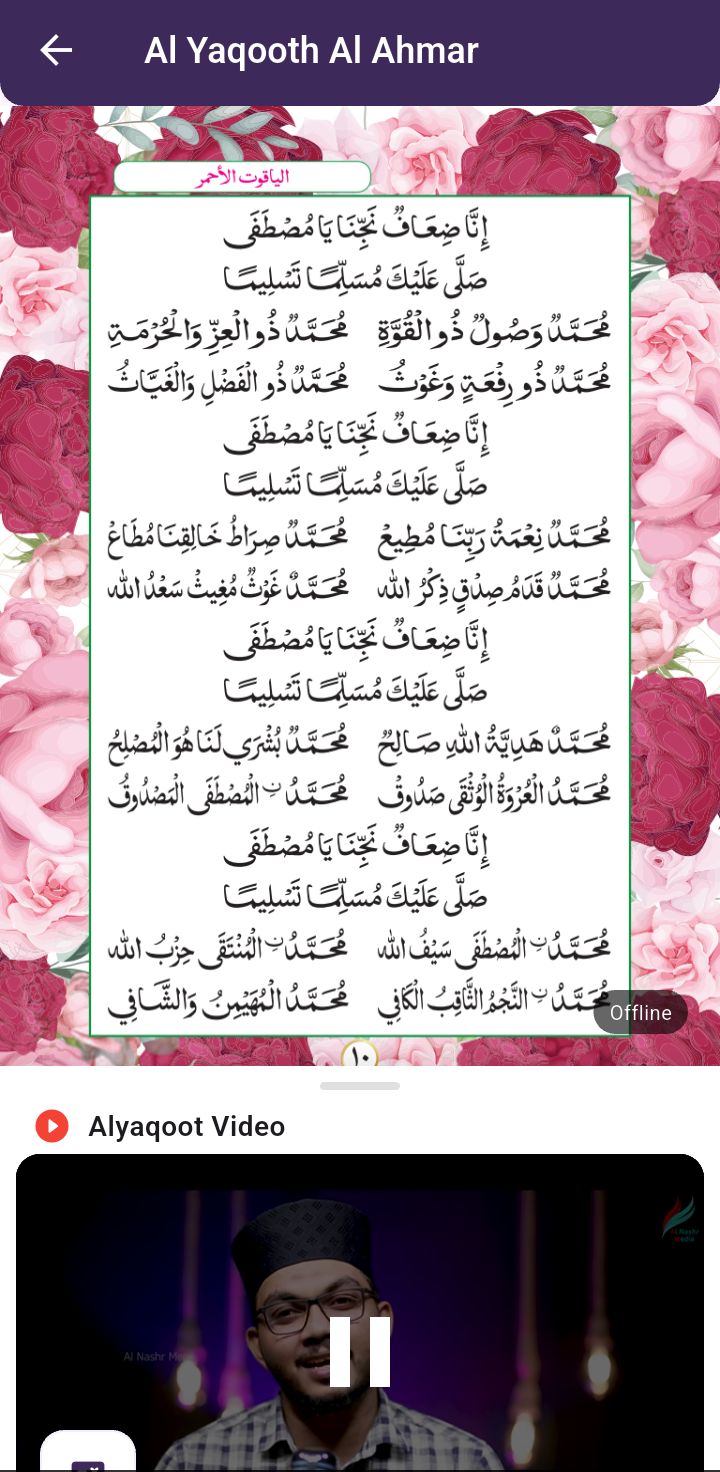 Al Yaqooth Al Ahmar
الياقوت الأحمر
إِنَّا ضِعَافٌ نَجِّنَا يَا مُصْطَفَى
صَلَّى عَلَيْكَ مُسَلِّمًا تَسْلِيمًا
مُحَمَّدٌ وَصُولٌ ذُو الْقُوَّةِ مُحَمَّدٌ ذُو الْعِزِّ وَالْحُرْمَةِ
مُحَمَّدٌ ذُو رِفْعَةٍ وَغَوْثٌ مُحَمَّدٌ ذُو الْفَضْلِ وَالْغَيَّاثُ
إِنَّا ضِعَافٌ نَجِّنَا يَا مُصْطَفَى
صَلَّى عَلَيْكَ مُسَلِّمًا تَسْلِيمًا
مُحَمَّدٌ نِعْمَةُ رَبِّنَا مُطِيعْ مُحَمَّدٌ صِرَاطُ خَالِقِنَا مُطَاعْ
مُحَمَّدٌ قَدَمُ صِدْقٍ ذِكْرُ الله مُحَمَّدٌ غَوْثٌ مُغِيثْ سَعْدُ الله
إِنَّا ضِعَافٌ نَجِّنَا يَا مُصْطَفَى
صَلَّى عَلَيْكَ مُسَلِّمًا تَسْلِيمًا
مُحَمَّدٌ هَدِيَّةُ اللهِ صَالِحٌ مُحَمَّدٌ بُشْرَي لَنَا هُوَ الْمُصْلِحُ
مُحَمَّدُ الْعُرْوَةُ الْوُثْقَى صَدُوقْ مُحَمَّدُ نِ الْمُصْطَفَى الْمَصْدُوقُ
إِنَّا ضِعَافٌ نَجِّنَا يَا مُصْطَفَى
صَلَّى عَلَيْكَ مُسَلِّمًا تَسْلِيمًا
مُحَمَّدُ نِ الْمُصْطَفَى سَيْفُ الله مُحَمَّدُ نِ الْمُنْتَقَى حِزْبُ الله
مُحَمَّدُ نِ النَّجْمُ الثَّاقِبُ الْكَافِي مُحَمَّدُ الْمُهَيْمِنُ وَالشَّافِي
Offline
١٠
Alyaqoot Video
Al Nashr Media
Al Nashr